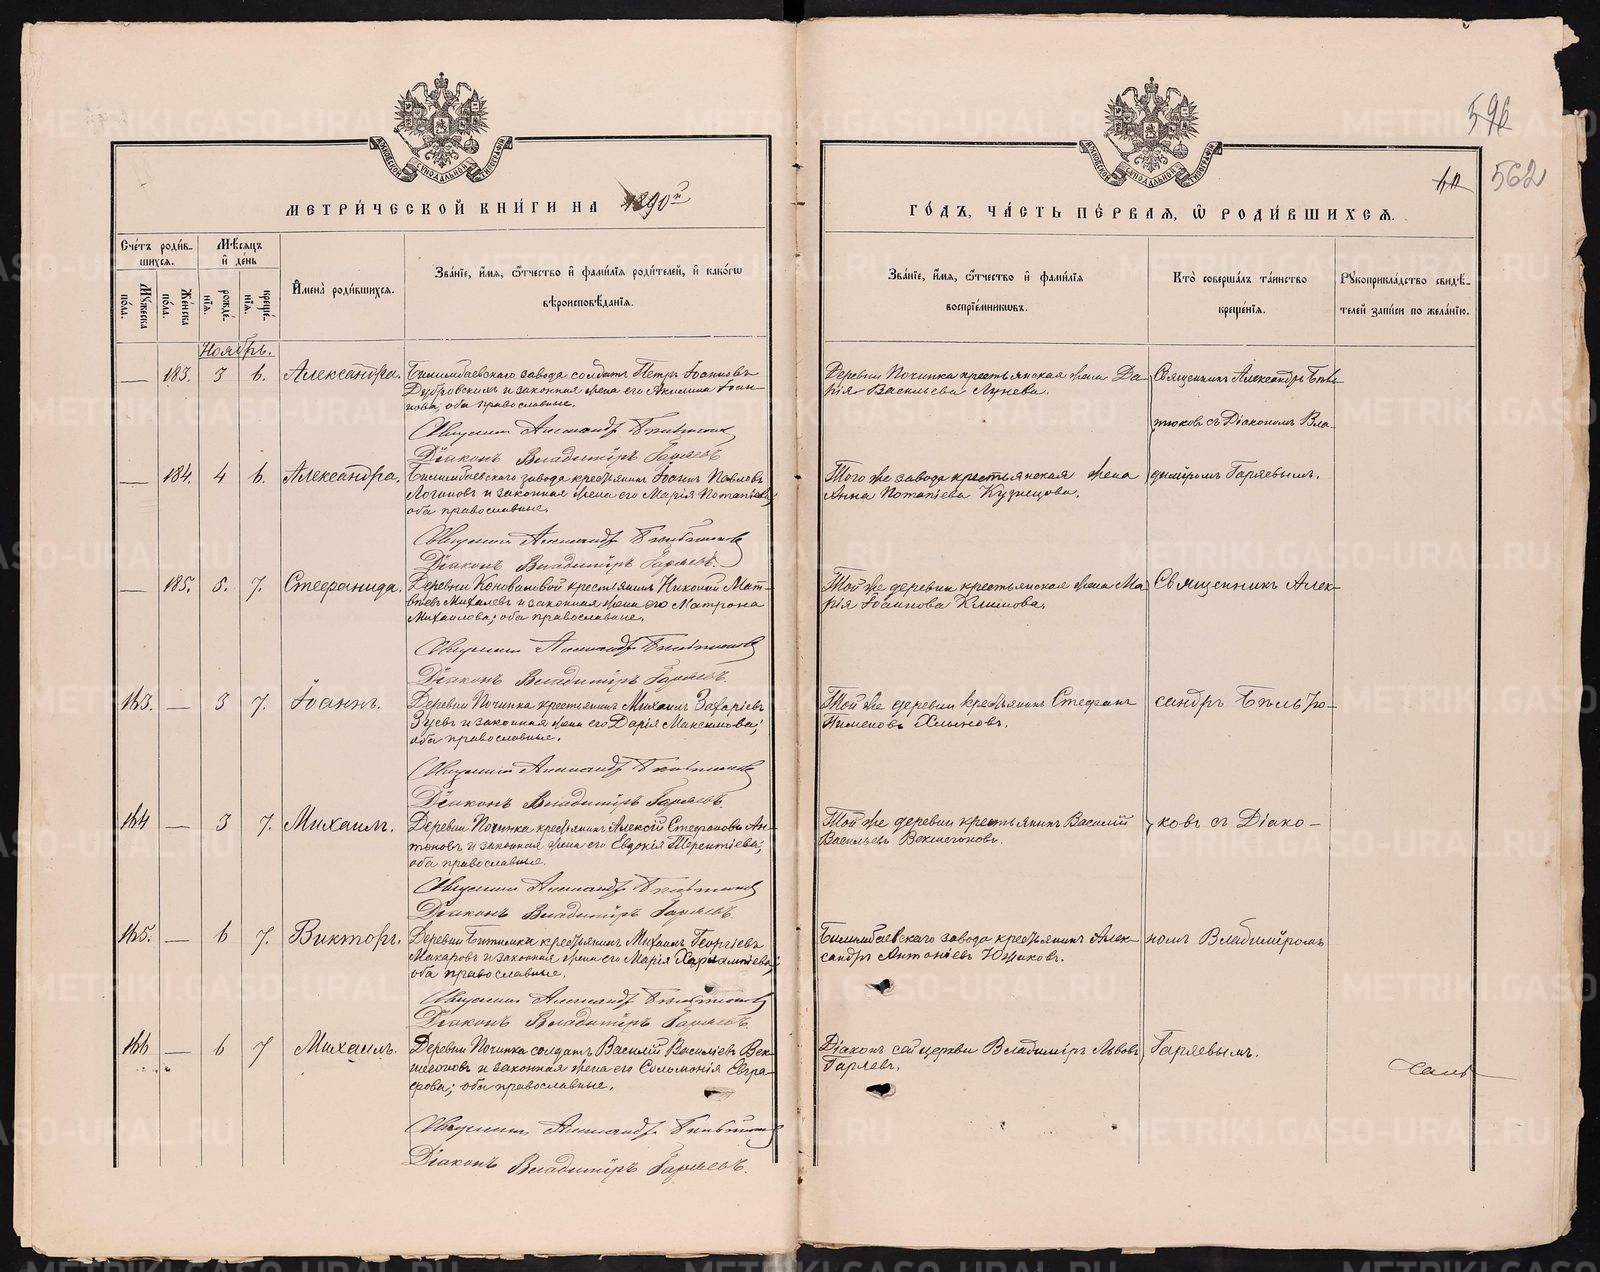 596
562
МЕТРИЧЕСКОЙ КНИГИ НА 1890й
ГОДЪ, ЧАСТЬ ПЕРВАЯ, Ѡ РОДИВШИХСЯ.
Счетъ родив-
шихся.
Мѣсяцъ
и день
Мужеска
пола.
Женска
пола.
рожде-
нія.
креще-
нія.
Имена родившихся.
Званіе, имя, ѿчество и фамилія родителей, и какогѡ
вѣроисповѣданія.
Званіе, имя, ѿчество и фамилія
воспріемникѡвъ.
Кто совершалъ таинство
крещенія.
Рукоприкладство свидѣ-
телей записи по желанію.
Ноябрь.
— 183. 3 6. Александра.
Билимбаевскаго завода солдатъ Петръ Іоанновъ
Дубровскихъ и законная жена его Акилина Іоан-
нова, оба православные.
Священникъ Александръ
Діаконъ Владиміръ Гаряевъ
Деревни Починка крестьянская жена Да-
рія Васильева Лунева.
Священникъ Александръ Бѣль-
тюковъ съ Діакономъ Вла-
— 184. 4 6. Александра.
Билимбаевскаго завода крестьянинъ Іоаннъ Павловъ
Логиновъ и законная жена его Марія Потапіева,
оба православные.
Священникъ Александръ
Діаконъ Владиміръ Гаряевъ.
Того же завода крестьянская жена
Анна Потапіева Кузнецова.
диміромъ Гаряевымъ.
— 185. 5. 7. Стефанида.
Деревни Коноваловой крестьянинъ Николай Мат-
вѣевъ Михалевъ и законная жена его Матрона
Михаилова; оба православные.
Священникъ Александръ
Діаконъ Владиміръ Гаряевъ.
Той же деревни крестьянская жена Ма-
рія Іоаннова Климова.
Священникъ Алек-
163. — 3 7. Іоаннъ.
Деревни Починка крестьянинъ Михаилъ Захаріевъ
Зуевъ и законная жена его Дарія Максимова;
оба православные.
Священникъ Александръ
Діаконъ Владиміръ Гаряевъ.
Той же деревни крестьянинъ Стефанъ
Пименовъ
сандръ Бѣльтю-
164 — 3 7. Михаилъ.
Деревни Починка крестьянинъ Алексій Стефановъ Ан-
тоновъ и законная жена его Евдокія Терентіева;
оба православные.
Священникъ Александръ
Діаконъ Владиміръ Гаряевъ.
Той же деревни крестьянинъ Василій
Васильевъ Векшегоновъ.
ковъ съ Діако-
165. — 6 7. Викторъ.
Деревни Битимки крестьянинъ Михаилъ Георгіевъ
Макаровъ и законная жена его Марія Харлампіева;
оба православные.
Священникъ Александръ
Діаконъ Владиміръ Гаряевъ.
Билимбаевскаго завода крестьянинъ Алек-
сандръ Антоніевъ Южаковъ.
номъ Владиміромъ
166 — 6 7 Михаилъ.
Деревни Починка солдатъ Василій Василіевъ Век-
шегоновъ и законная жена его Соломонія Евгра-
фова; оба православные.
Священникъ Александръ
Діаконъ Владиміръ Гаряевъ.
Діаконъ сей церкви Владиміръ Львовъ
Гаряевъ.
Гаряевымъ.
METRIKI.GASO-URAL.RU